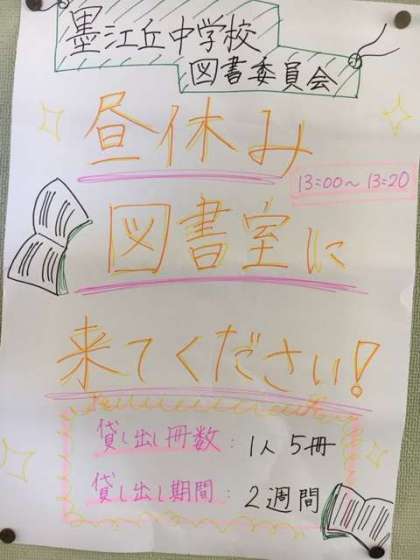 墨江丘中学校
図書委員会
昼休み
13:00~13:20
図書室に
来てください!
貸し出し冊数:1人5冊
貸し出し期間:2週間